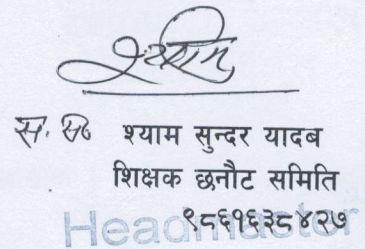 श्याम
स. स. श्याम सुन्दर यादब
शिक्षक छनौट समिति
९८६१६३८४२७
Headmaster